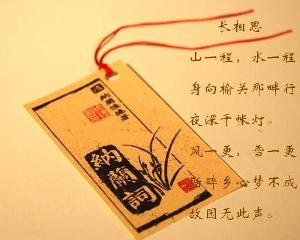 长相思
山一程，水一程
身向榆关那畔行
夜深千帐灯。
风一更，雪一更
聒碎乡心梦不成
故园无此声。
納蘭詞